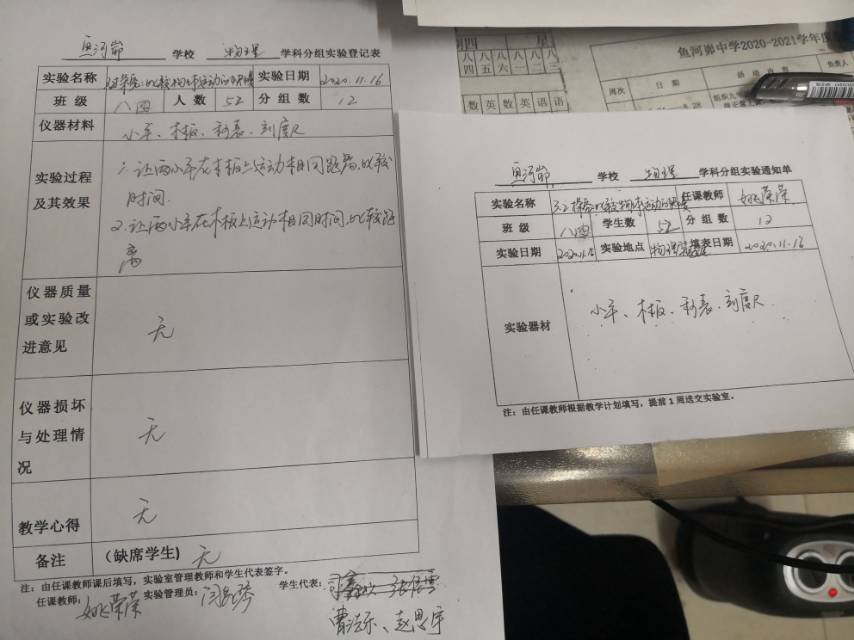 鱼河峁 学校 物理 学科分组实验登记表
实验名称 实验日期 2020.11.16
班级 八四 人数 52 分组数 12
仪器材料 小车、木板、秒表、刻度尺
实验过程及其效果
1. 让两小车在木板上运动相同路程，比较
时间.
2. 让两小车在木板上运动相同时间，比较路
离
仪器质量或实验改进意见 无
仪器损坏与处理情况 无
教学心得 无
备注 (缺席学生) 无
注：由任课教师课后填写，实验室管理教师和学生代表签字。
任课教师： 姚荣荣 实验管理员： 学生代表：
曹 乐、赵思宇
鱼河峁 学校 物理 学科分组实验通知单
实验名称 任课教师 姚荣荣
班级 八四 学生数 52 分组数 12
实验日期 实验地点 物理 填表日期 2020.11.16
实验器材 小车、木板、秒表、刻度尺
注：由任课教师根据教学计划填写，提前1周送交实验室。
鱼河峁中学2020-2021学年度
周次 日期 活动内容 负责人
四 星
八四 八五 八六 八一 八二 八三
数 英 数 英 语 语